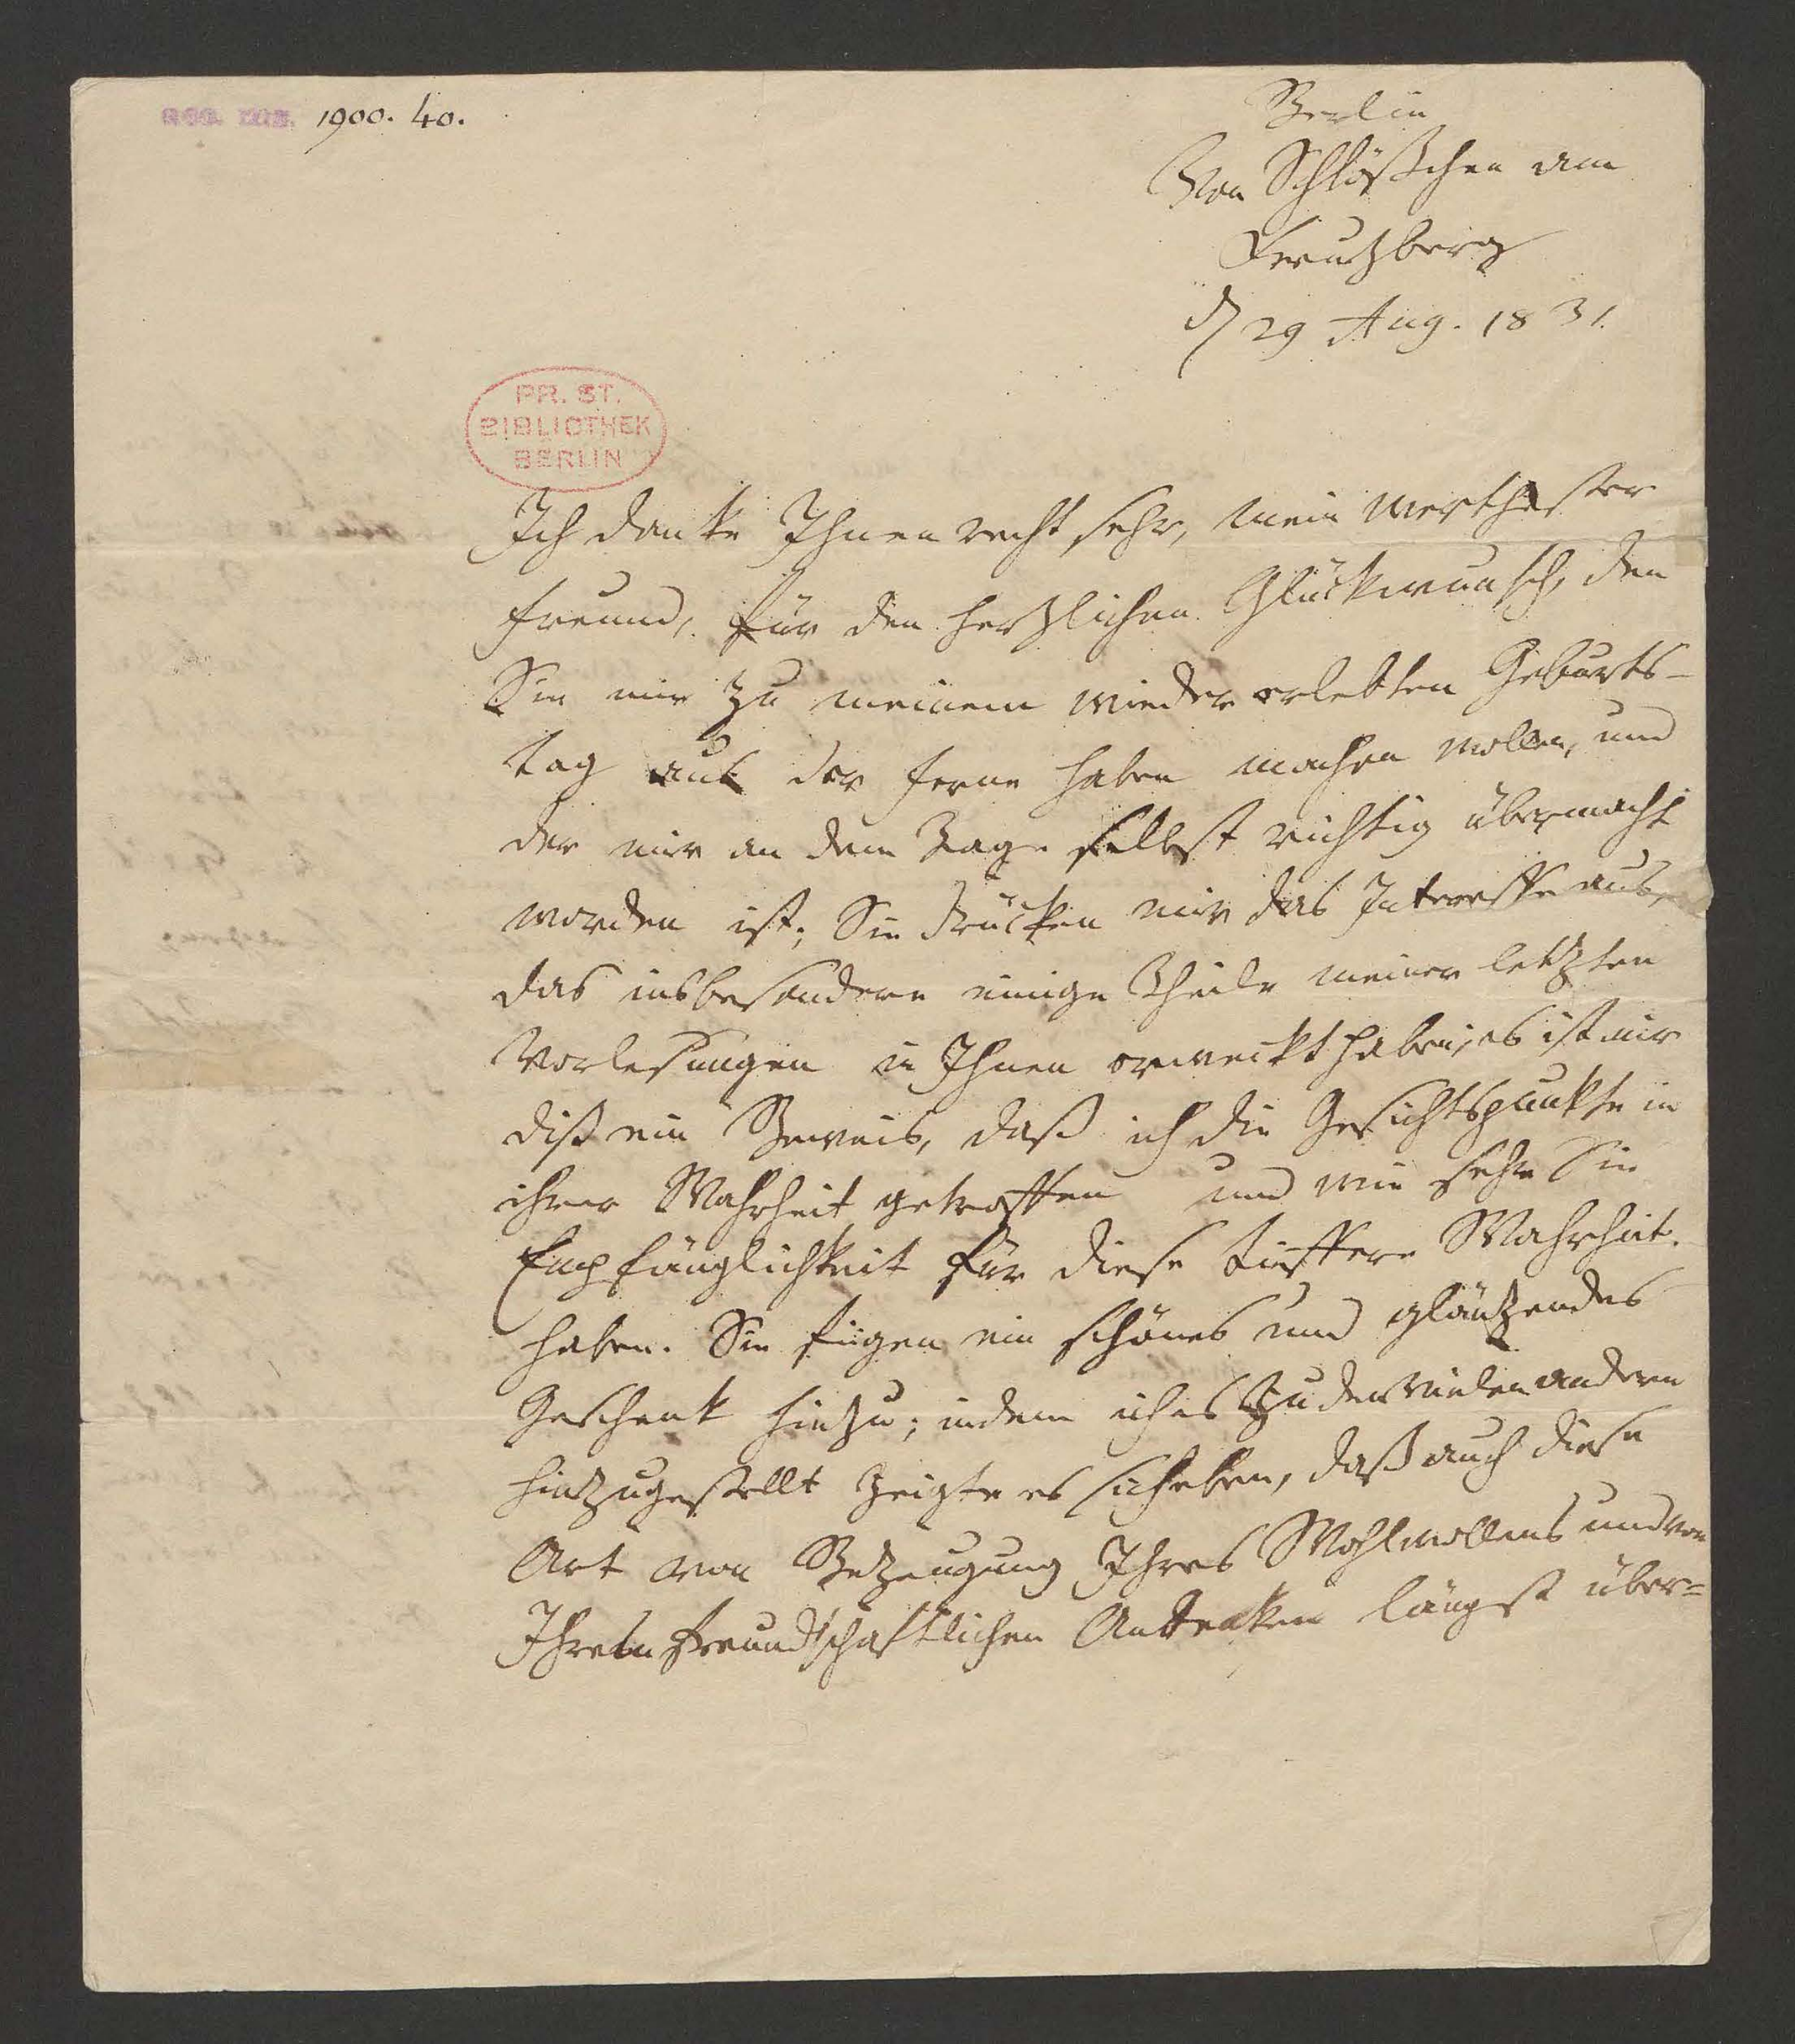 acc. ms. 1900. 40.
Berlin
Von Schlößchen am
Kreutzberg
d 29 Aug. 1831.
PR. ST.
BIBLIOTHEK
BERLIN
Ich danke Ihnen recht sehr, mein werthester
Freund, für den hertzlichen Glückwunsch, den
Sie mir zu meinem wieder erlebten Geburts-
tag aus der Ferne haben machen wollen, und
der mir an dem Tage selbst richtig übermacht
worden ist; Sie drücken mir das Interesse aus,
das insbesondere einige Theile meiner letzten
Vorlesungen in Ihnen erweckt haben; es ist mir
diß ein Beweis, daß ich die Gesichtspunkte in
ihrer Wahrheit getroffen und wie sehr Sie
Empfänglichkeit für diese tieffere Wahrheit
haben. Sie fügen ein schönes und gläntzendes
Geschenk hintzu; indem ich es zu den vielen andern
hintzugestellt zeigte es sich eben, daß auch diese
Art von Betzeugung Ihres Wohlwollens und von
Ihrem freundschaftlichen Andenken längst über=